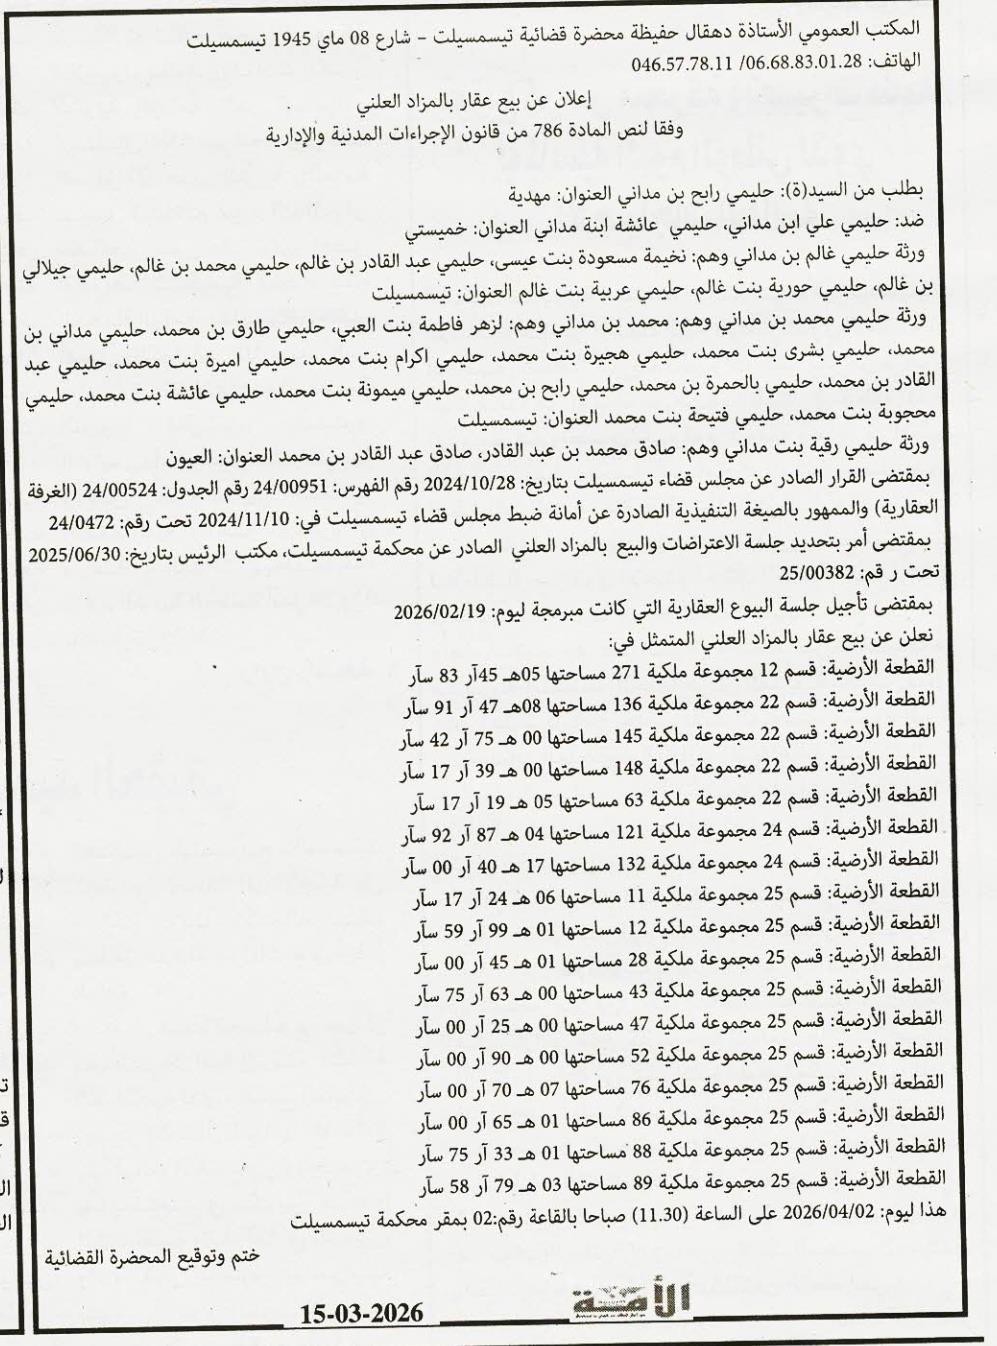 المكتب العمومي الأستاذة دهقال حفيظة محضرة قضائية تيسمسيلت – شارع 08 ماي 1945 تيسمسيلت
الهاتف: 06.68.83.01.28 /046.57.78.11
إعلان عن بيع عقار بالمزاد العلني
وفقا لنص المادة 786 من قانون الإجراءات المدنية والإدارية
بطلب من السيد(ة): حليمي رابح بن مداني العنوان: مهدية
ضد: حليمي علي ابن مداني، حليمي عائشة ابنة مداني العنوان: خميستي
ورثة حليمي غالم بن مداني وهم: نخيمة مسعودة بنت عيسى، حليمي عبد القادر بن غالم، حليمي محمد بن غالم، حليمي جيلالي
بن غالم، حليمي حورية بنت غالم، حليمي عربية بنت غالم العنوان: تيسمسيلت
ورثة حليمي محمد بن مداني وهم: محمد بن مداني وهم: لزهر فاطمة بنت العبي، حليمي طارق بن محمد، حليمي مداني بن
محمد، حليمي بشرى بنت محمد، حليمي هجيرة بنت محمد، حليمي اكرام بنت محمد، حليمي اميرة بنت محمد، حليمي عبد
القادر بن محمد، حليمي بالحمرة بن محمد، حليمي رابح بن محمد، حليمي ميمونة بنت محمد، حليمي عائشة بنت محمد، حليمي
محجوبة بنت محمد، حليمي فتيحة بنت محمد العنوان: تيسمسيلت
ورثة حليمي رقية بنت مداني وهم: صادق محمد بن عبد القادر، صادق عبد القادر بن محمد العنوان: العيون
بمقتضى القرار الصادر عن مجلس قضاء تيسمسيلت بتاريخ: 2024/10/28 رقم الفهرس: 24/00951 رقم الجدول: 24/00524 (الغرفة
العقارية) والممهور بالصيغة التنفيذية الصادرة عن أمانة ضبط مجلس قضاء تيسمسيلت في: 2024/11/10 تحت رقم: 24/0472
بمقتضى أمر بتحديد جلسة الاعتراضات والبيع بالمزاد العلني الصادر عن محكمة تيسمسيلت، مكتب الرئيس بتاريخ: 2025/06/30
تحت ر قم: 25/00382
بمقتضى تأجيل جلسة البيوع العقارية التي كانت مبرمجة ليوم: 2026/02/19
نعلن عن بيع عقار بالمزاد العلني المتمثل في:
القطعة الأرضية: قسم 12 مجموعة ملكية 271 مساحتها 05هـ 45آر 83 سآر
القطعة الأرضية: قسم 22 مجموعة ملكية 136 مساحتها 08هـ 47 آر 91 سآر
القطعة الأرضية: قسم 22 مجموعة ملكية 145 مساحتها 00 هـ 75 آر 42 سآر
القطعة الأرضية: قسم 22 مجموعة ملكية 148 مساحتها 00 هـ 39 آر 17 سآر
القطعة الأرضية: قسم 22 مجموعة ملكية 63 مساحتها 05 هـ 19 آر 17 سآر
القطعة الأرضية: قسم 24 مجموعة ملكية 121 مساحتها 04 هـ 87 آر 92 سآر
القطعة الأرضية: قسم 24 مجموعة ملكية 132 مساحتها 17 هـ 40 آر 00 سآر
القطعة الأرضية: قسم 25 مجموعة ملكية 11 مساحتها 06 هـ 24 آر 17 سآر
القطعة الأرضية: قسم 25 مجموعة ملكية 12 مساحتها 01 هـ 99 آر 59 سآر
القطعة الأرضية: قسم 25 مجموعة ملكية 28 مساحتها 01 هـ 45 آر 00 سآر
القطعة الأرضية: قسم 25 مجموعة ملكية 43 مساحتها 00 هـ 63 آر 75 سآر
القطعة الأرضية: قسم 25 مجموعة ملكية 47 مساحتها 00 هـ 25 آر 00 سآر
القطعة الأرضية: قسم 25 مجموعة ملكية 52 مساحتها 00 هـ 90 آر 00 سآر
القطعة الأرضية: قسم 25 مجموعة ملكية 76 مساحتها 07 هـ 70 آر 00 سآر
القطعة الأرضية: قسم 25 مجموعة ملكية 86 مساحتها 01 هـ 65 آر 00 سآر
القطعة الأرضية: قسم 25 مجموعة ملكية 88 مساحتها 01 هـ 33 آر 75 سآر
القطعة الأرضية: قسم 25 مجموعة ملكية 89 مساحتها 03 هـ 79 آر 58 سآر
هذا ليوم: 2026/04/02 على الساعة (11.30) صباحا بالقاعة رقم:02 بمقر محكمة تيسمسيلت
ختم وتوقيع المحضرة القضائية
الأمة
15-03-2026